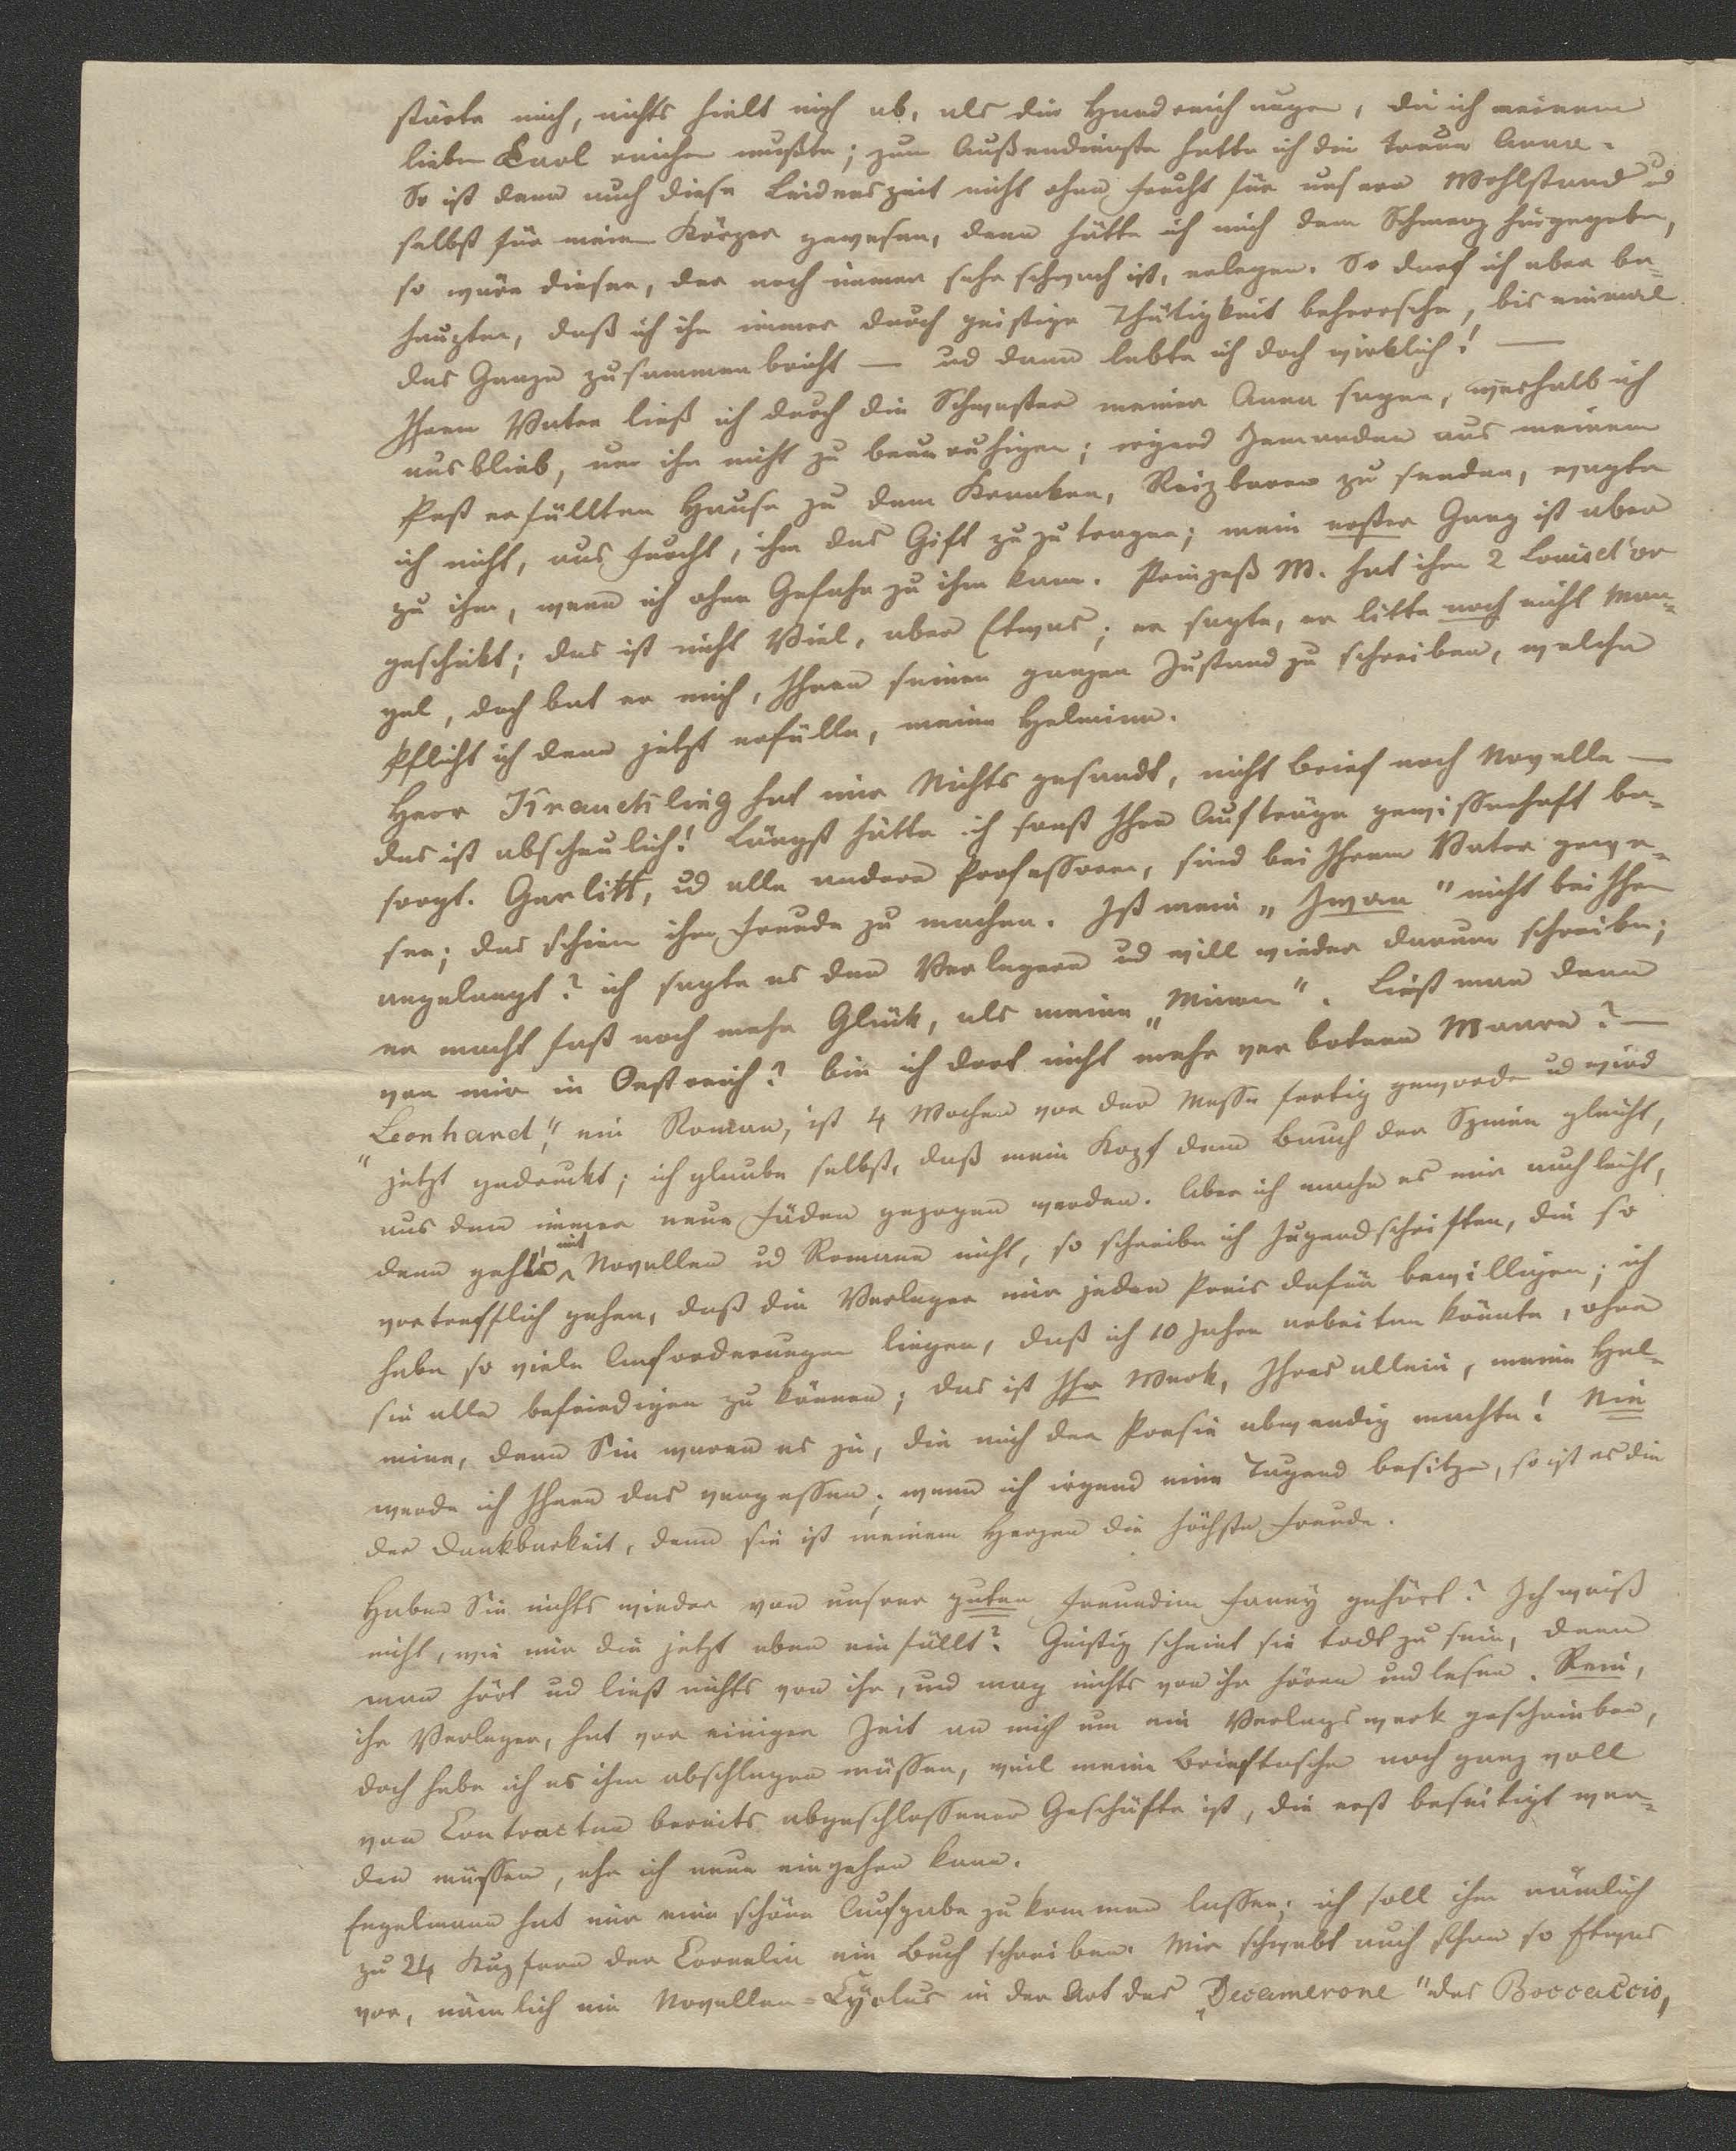 stärke mich, nichts hielt mich ab, als die Handreichungen, die ich meinem
lieben Carl reichen mußte; zum Außendienste hatte ich die treue Anna.
So ist denn auch diese Leidenszeit nicht ohne Frucht für unsern Wohlstand ud
selbst für meinen Körper gewesen, denn hätte ich mich dem Schmerz hingegeben,
so wäre dieser, der noch immer sehr schwach ist, erlegen. So darf ich aber be-
haupten, daß ich ihn immer durch geistige Thätigkeit beherrsche, bis einmal
das Ganze zusammenbricht — ud dann lebte ich doch wirklich! —
Ihrem Vater ließ ich durch die Schwester meiner Anna sagen, weshalb ich
ausblieb, um ihn nicht zu beunruhigen; irgend Jemanden aus meinem
Pest erfüllten Hause zu dem Kranken, Reizbaren zu senden, wagte
ich nicht, aus Furcht, ihm das Gift zuzutragen; mein erster Gang ist aber
zu ihm, wenn ich ohne Gefahr zu ihm kann. Prinzeß M. hat ihm 2 Louisd'or
geschikt; das ist nicht Viel, aber Etwas; er sagte, er litte noch nicht Man-
gel, doch bat er mich, Ihnen seinen ganzen Zustand zu schreiben, welche
Pflicht ich denn jetzt erfülle, meine Helmina.
Herr Krauchling hat mir Nichts gesandt, nicht Brief noch Novelle —
das ist abscheulich! Längst hätte ich sonst Ihre Aufträge gewissenhaft be-
sorgt. Gerlitt, ud alle andere Professoren, sind bei Ihrem Vater gewe-
sen; das schien ihm Freude zu machen. Ist mein „Iwan" nicht bei Ihnen
angelangt? ich sagte es den Verlegern ud will wieder darum schreiben;
er macht fast noch mehr Glück, als meine „Miram". Ließt man denn
von mir in Oestreich? bin ich dort nicht mehr verbotene Waare? —
„Leonhard", ein Roman, ist 4 Wochen vor der Messe fertig geworden ud wird
jetzt gedruckt; ich glaube selbst, daß mein Kopf dem Bauch der Spinne gleicht,
aus dem immer neue Fäden gezogen werden. Aber ich mache es mir auch leicht,
denn geht's mit Novellen ud Romane nicht, so schreibe ich Jugendschriften, die so
vortrefflich gehen, daß die Verleger mir jeden Preis dafür bewilligen; ich
habe so viele Anforderungen liegen, daß ich 10 Jahre arbeiten könnte, ohne
sie alle befriedigen zu können; das ist Ihr Werk, Ihres allein, meine Hel-
mina, denn Sie waren es ja, die mich der Poesie abwendig machte! Nie
werde ich Ihnen das vergessen; wenn ich irgend eine Tugend besitze, so ist es die
der Dankbarkeit, denn sie ist meinem Herzen die höchste Freude.
Haben Sie nichts wieder von unsrer guten Freundin Fanny gehört? Ich weiß
nicht, wie mir die jetzt eben einfällt? Geistig scheint sie todt zu sein, denn
man hört ud ließt nichts von ihr, und mag nichts von ihr hören und lesen. Rein,
ihr Verleger, hat vor einiger Zeit an mich um ein Verlagswerk geschrieben,
doch habe ich es ihm abschlagen müssen, weil meine Brieftasche noch ganz voll
von Contracten bereits abgeschlossener Geschäfte ist, die erst beseitigt wer-
den müssen, ehe ich neue eingehen kann.
Engelmann hat mir eine schöne Aufgabe zukommen lassen; ich soll ihm nämlich
zu 24 Kupfern der Cornelia ein Buch schreiben. Mir schwebt auch schon so Etwas
vor, nämlich ein Novellen-Cyclus in der Art des „Decamerone" des Boccaccio,